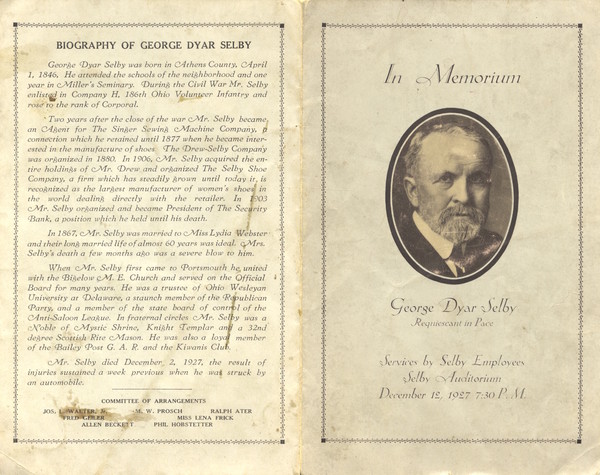 BIOGRAPHY OF GEORGE DYAR SELBY
George Dyar Selby was born in Athens County, April
1, 1846. He attended the schools of the neighborhood and one
year in Miller's Seminary. During the Civil War Mr. Selby
enlisted in Company H, 186th Ohio Volunteer Infantry and
rose to the rank of Corporal.
Two years after the close of the war Mr. Selby became
an Agent for The Singer Sewing Machine Company, a
connection which he retained until 1877 when he became inter-
ested in the manufacture of shoes. The Drew-Selby Company
was organized in 1880. In 1906, Mr. Selby acquired the en-
tire holdings of Mr. Drew and organized The Selby Shoe
Company, a firm which has steadily grown until today it is
recognized as the largest manufacturer of women's shoes in
the world dealing directly with the retailer. In 1903
Mr. Selby organized and became President of The Security
Bank, a position which he held until his death.
In 1867, Mr. Selby was married to Miss Lydia Webster
and their long married life of almost 60 years was ideal. Mrs.
Selby's death a few months ago was a severe blow to him.
When Mr. Selby first came to Portsmouth he united
with the Bigelow M. E. Church and served on the Official
Board for many years. He was a trustee of Ohio Wesleyan
University at Delaware, a staunch member of the Republican
Party, and a member of the state board of control of the
Anti-Saloon League. In fraternal circles Mr. Selby was a
Noble of Mystic Shrine, Knight Templar and a 32nd
degree Scottish Rite Mason. He was also a loyal member
of the Bailey Post G. A. R. and the Kiwanis Club.
Mr. Selby died December 2, 1927, the result of
injuries sustained a week previous when he was struck by
an automobile.
COMMITTEE OF ARRANGEMENTS
JOS. WALTER, M. W. PROSCH RALPH ATER
FRED MISS LENA FRICK
ALLEN BECKETT PHIL HOBSTETTER
In Memorium
George Dyar Selby
Requiescant in Pace
Services by Selby Employees
Selby Auditorium
December 12, 1927 7:30 P. M.